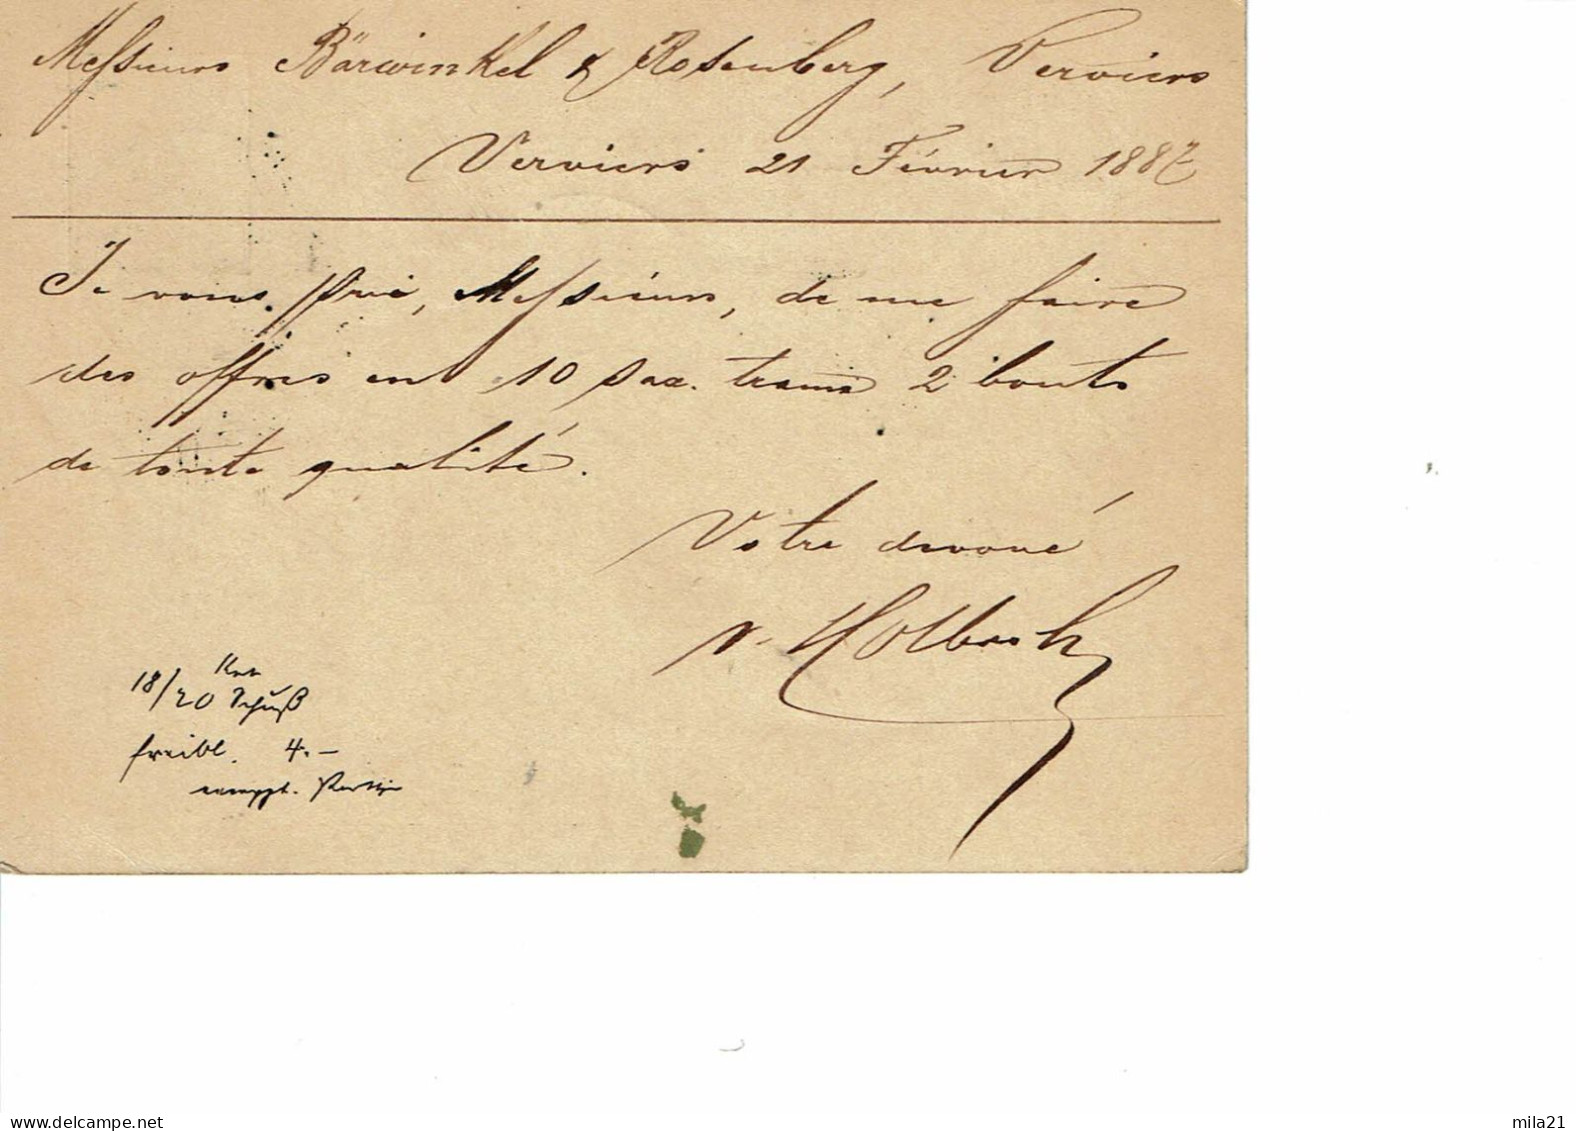 Messieurs Bärwinkel & Rosenberg, Verviers
Verviers 21 Février 1887
Je vous prie, Messieurs, de me faire
des offres en 10 sax. trame 2 bouts
de toute qualité.
Votre dévoué
18/20 Schuß
freibl. 4.–
www.delcampe.net
mila21